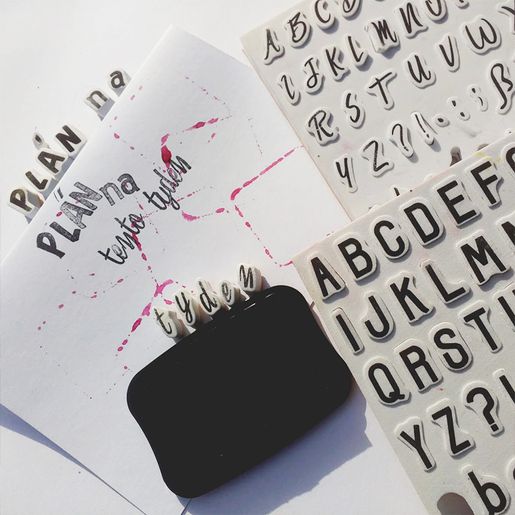 PLÁN na
PLÁN na
tento tyden
tyden
ABCD
IJKLMNO
RSTUVW
YZ?!
ABCDEF
IJKLMN
QRSTU
YZ?!
b